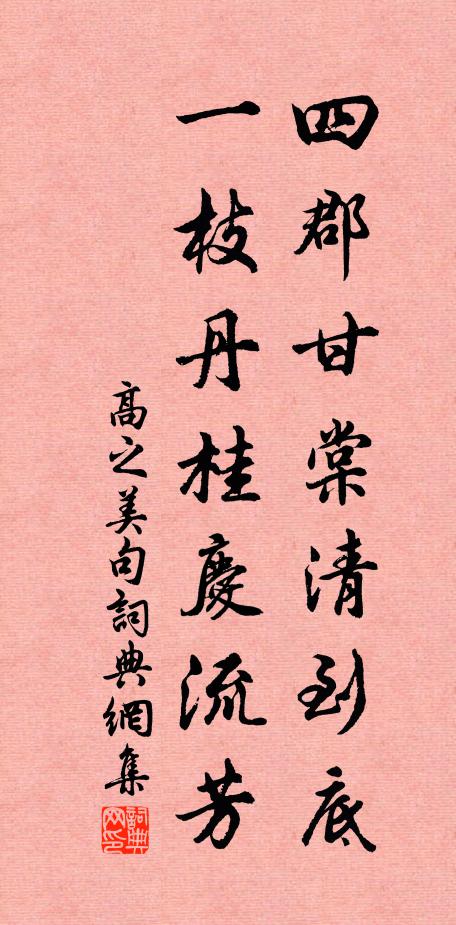 四郡甘棠清到底
一枝丹桂慶流芳
高之美句詞典網集
詞典网印